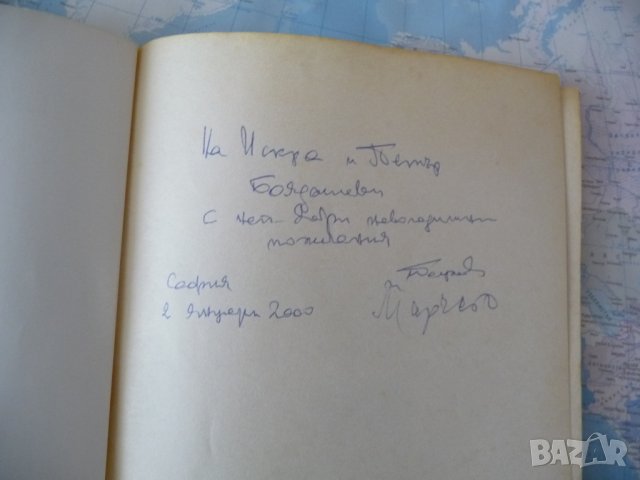 На Искра и Петър
Бояджиеви
с най-добри новогодишни
пожелания
София
2 януари 2000
BAZAR